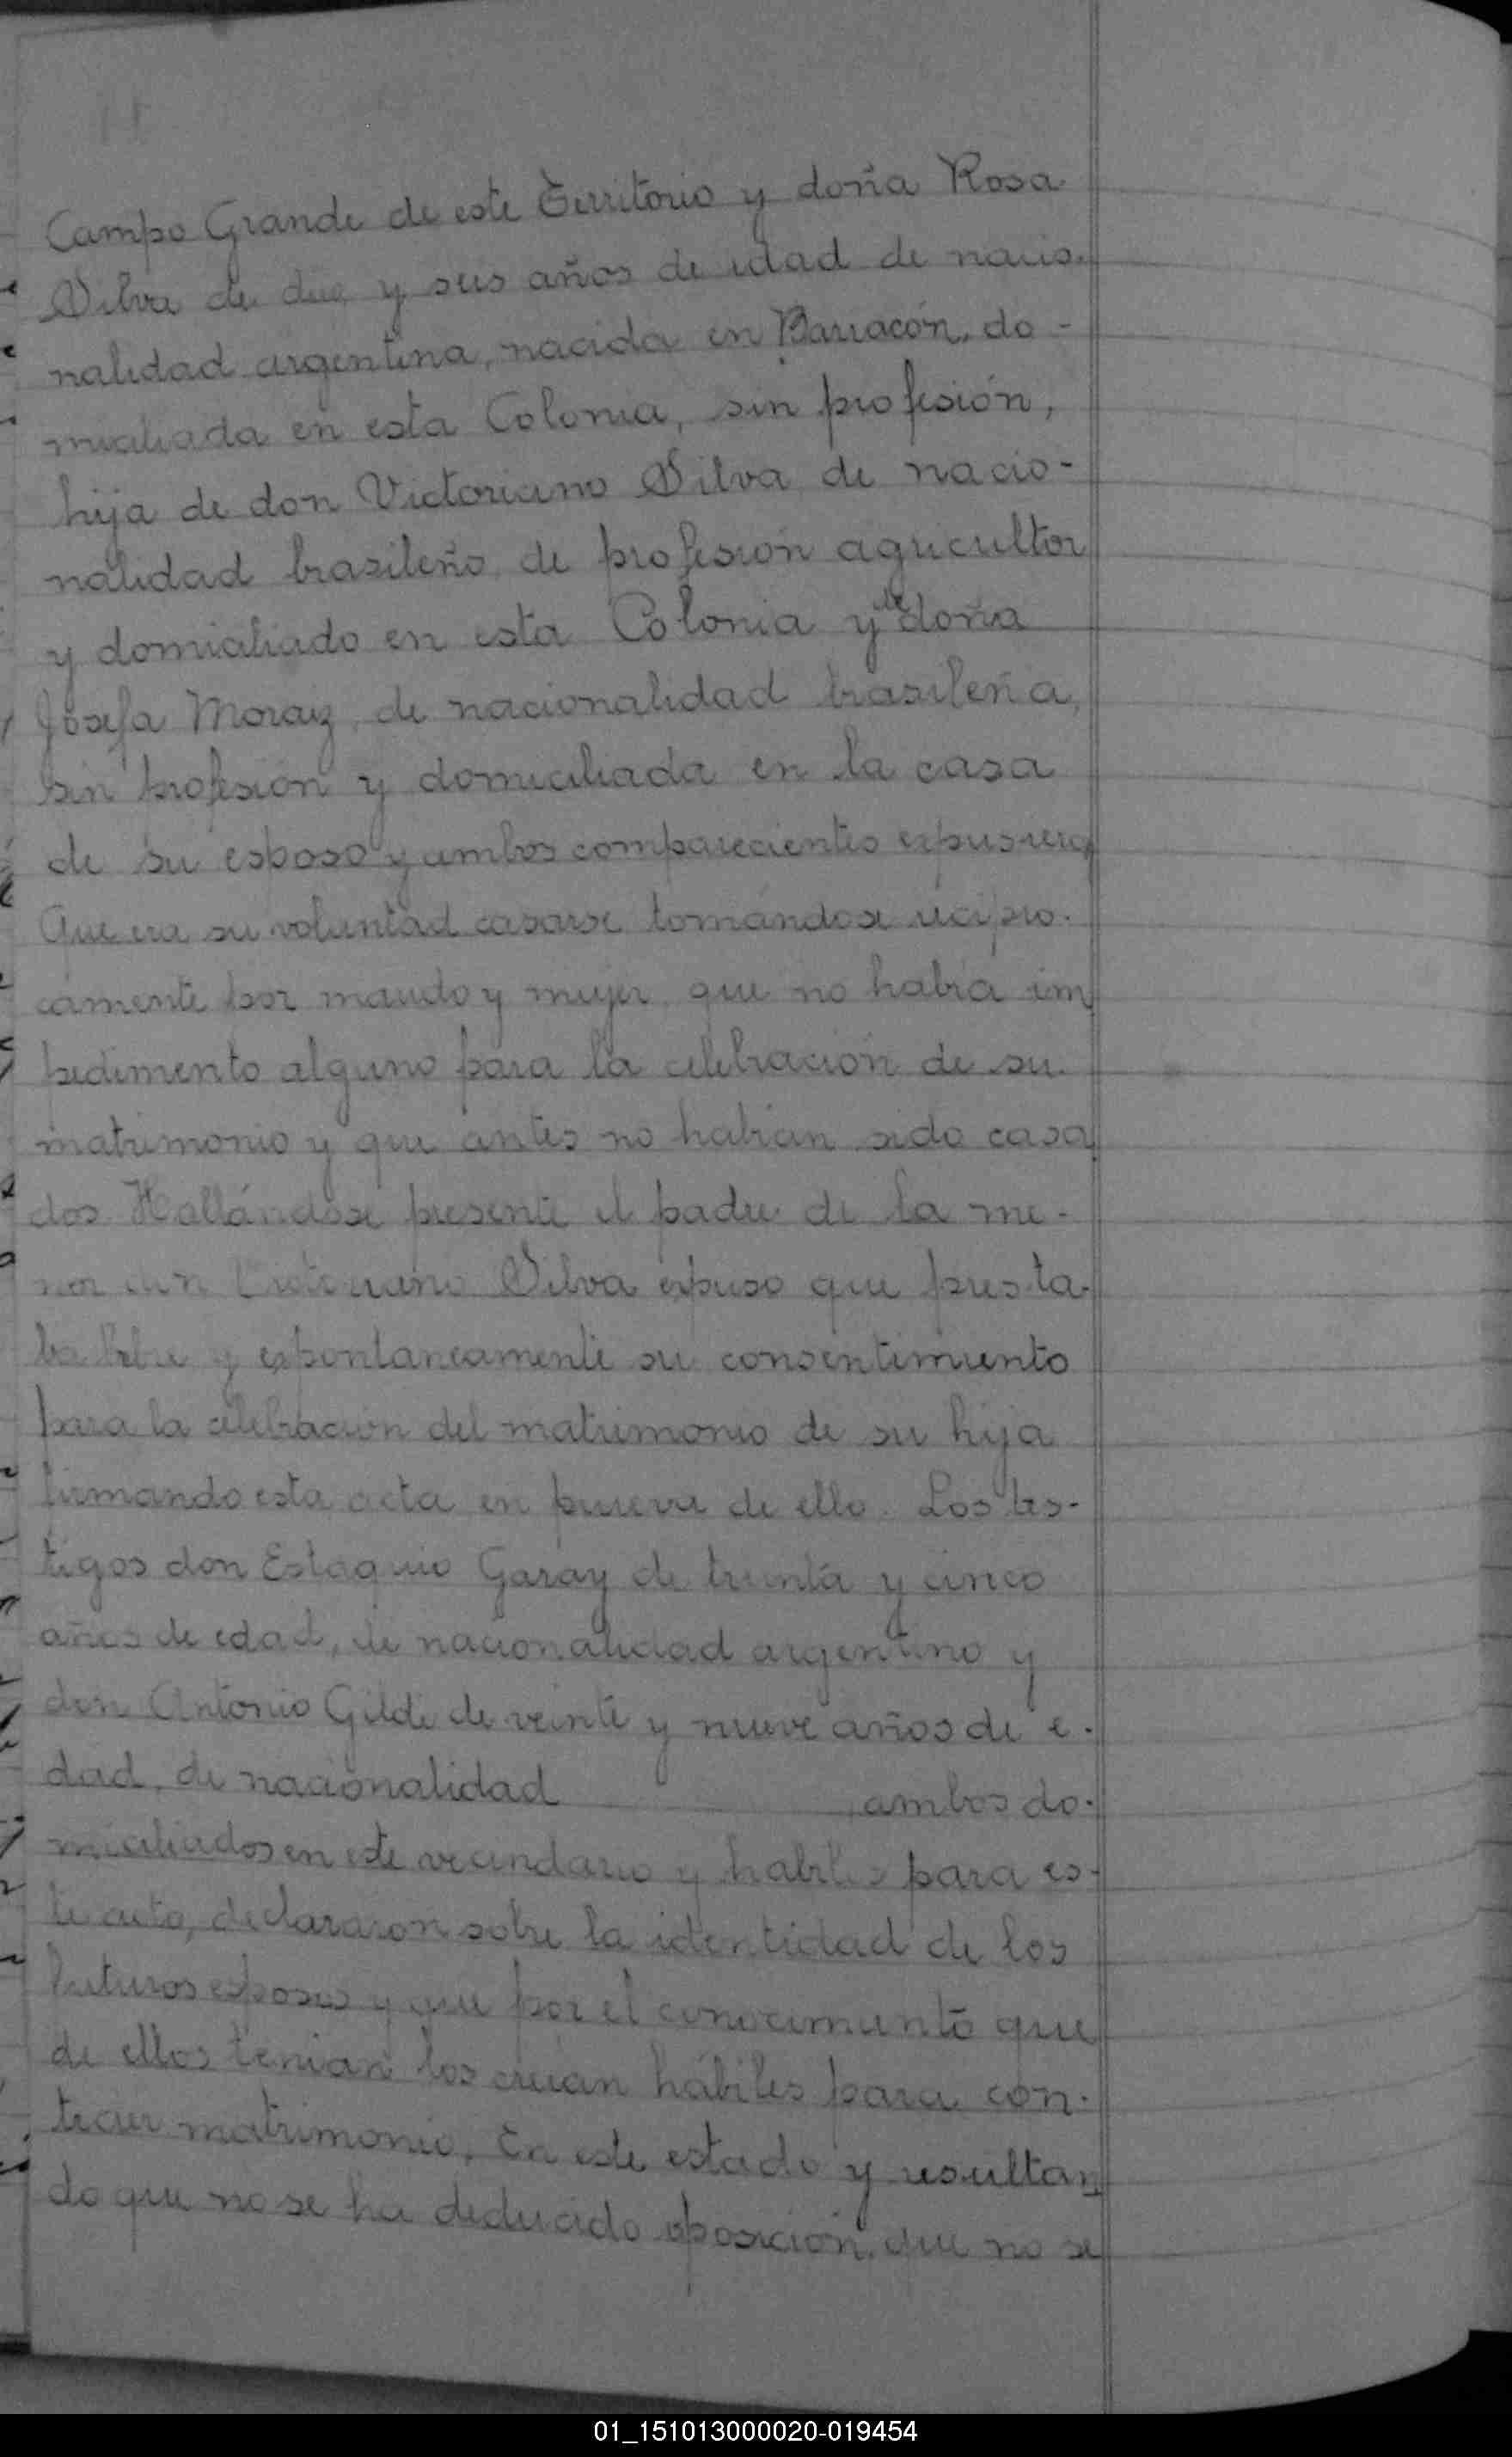 Campo Grande de este Territorio y doña Rosa
Silva de diez y seis años de edad de nacio-
nalidad argentina, nacida en Barracón, do-
miciliada en esta Colonia, sin profesión,
hija de don Victoriano Silva de nacio-
nalidad brasileño de profesión agricultor
y domiciliado en esta Colonia y de doña
Josefa Moraiz, de nacionalidad brasileña,
sin profesión y domiciliada en la casa
de su esposo y ambos comparecientes expusieron
Que era su voluntad casarse tomándose recipro-
camente por marido y mujer, que no había im
pedimento alguno para la celebración de su
matrimonio y que antes no habían sido casa
dos. Hallándose presente el padre de la me-
nor don Victoriano Silva expuso que presta-
ba libre y espontaneamente su consentimiento
para la celebración del matrimonio de su hija
firmando esta acta en prueva de ello. Los tes-
tigos don Estaquio Garay de treinta y cinco
años de edad, de nacionalidad argentino y
don Antonio Gilde de veinte y nueve años de e-
dad, de nacionalidad ambos do-
miciliados en este vecindario y habiles para es-
te acto, declararon sobre la identidad de los
futuros esposos y que por el conocimiento que
de ellos tenian los creian hábiles para con-
traer matrimonio. En este estado y resultan
do que no se ha deducido oposición, que no se
01_151013000020-019454